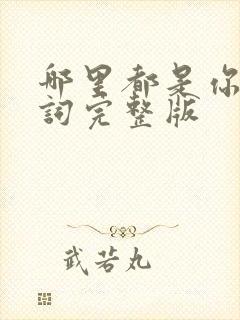 哪里都是你
詞完整版
武若丸